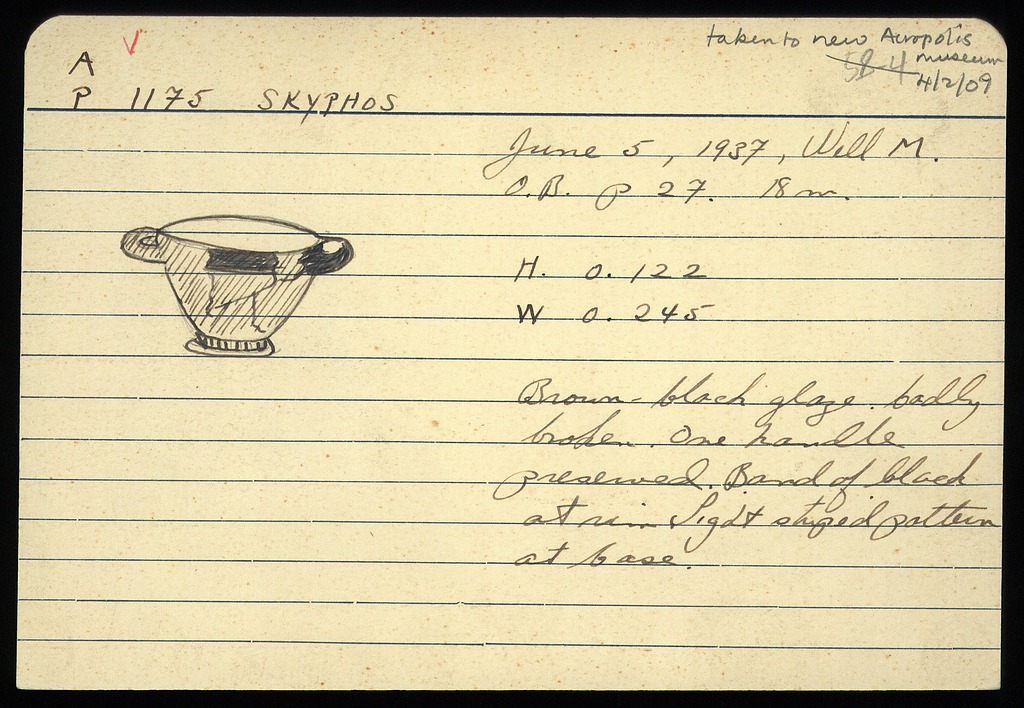 taken to new Acropolis
museum
58-4
4/2/09
A V
P 1175 SKYPHOS
June 5, 1937, Well M.
O.B. p 27. 18 m.
H. 0.122
W 0.245
Brown-black glaze. badly
broken. One handle
preserved. Band of black
at rim Light striped pattern
at base.